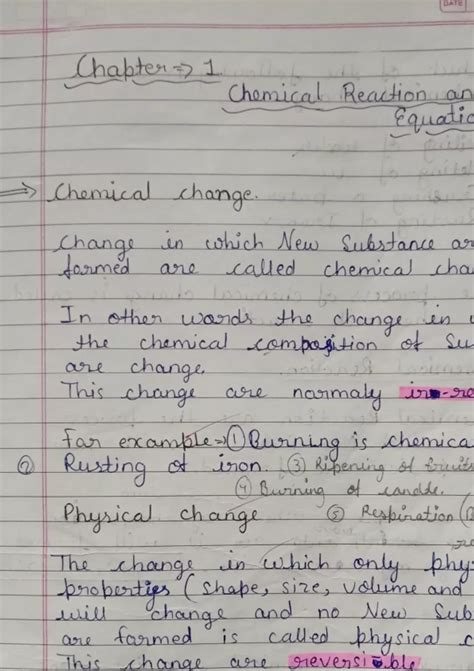 DATE
Chapter ⇒ 1
Chemical Reaction an
Equatio
⇒ Chemical change.
Change in which New Substance ar
formed are called chemical cha
In other words the change in
the chemical composition of Su
are change.
This change are normaly irr-re
for example⇒ ① Burning is chemica
② Rusting of iron. ③ Ripening of fruits
④ Burning of candde.
Physical change ⑤ Respiration
The change in which only phys
properties (shape, size, volume and
will change and no New Sub
are formed is called physical c
This change are reversible